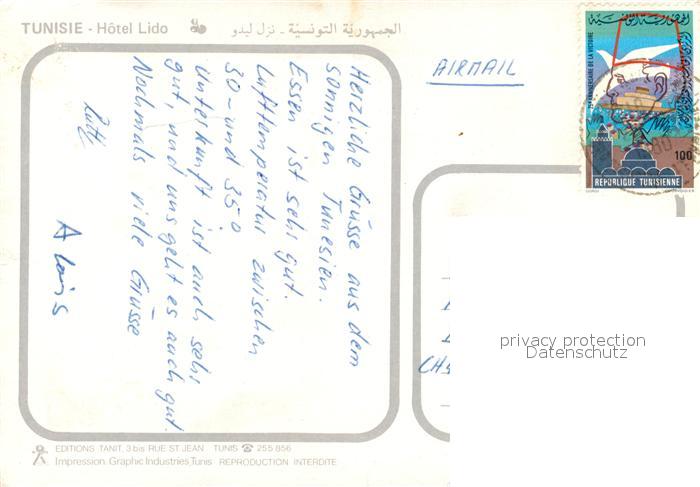 TUNISIE - Hôtel Lido
الجمهوريّة التونسيّة - نزل ليدو
AIRMAIL
100
REPUBLIQUE TUNISIENNE
Herzliche Grüsse aus dem
sonnigen Tunesien.
Essen ist sehr gut.
Lufttemperatur zwischen
30- und 35°
Unterkunft ist auch sehr
gut, und uns geht es auch gut.
Nochmals viele Grüsse
Alois
CH
privacy protection
Datenschutz
EDITIONS TANIT, 3 bis RUE ST JEAN TUNIS ☎ 255 856
Impression. Graphic Industries, Tunis - REPRODUCTION INTERDITE